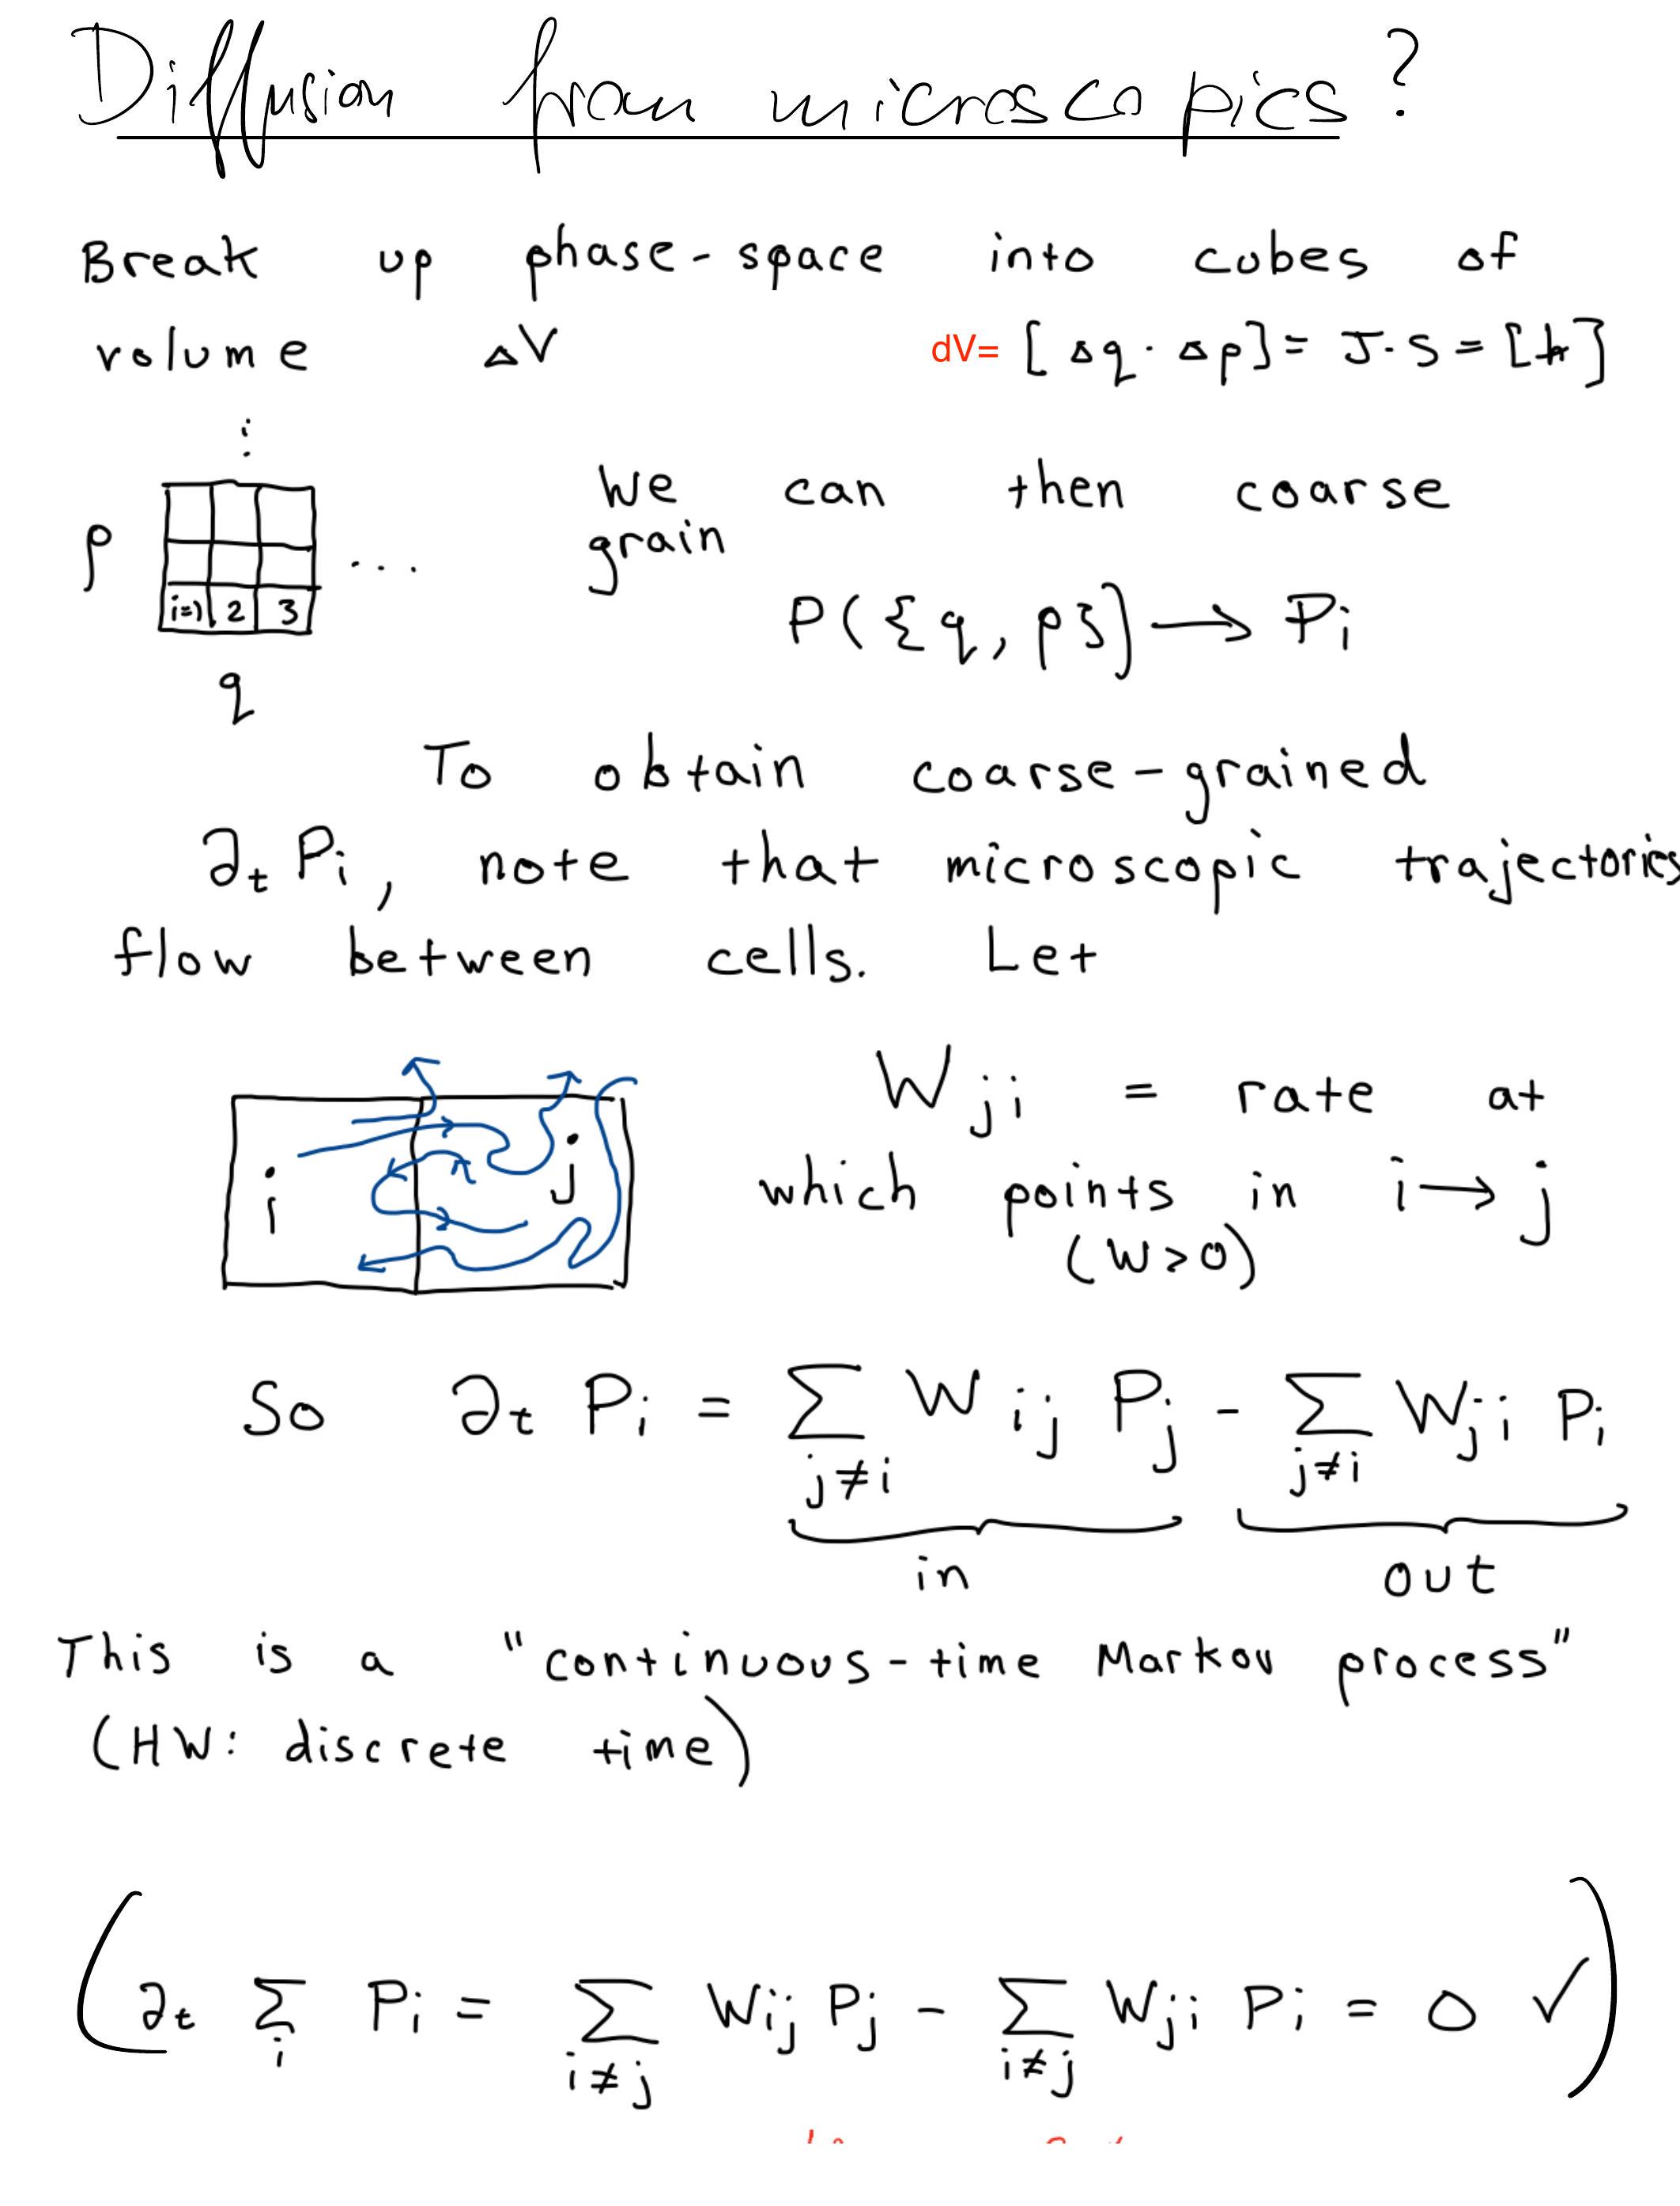 Diffusion from microscopics?
Break up phase-space into cubes of
volume ΔV dV= [Δq·Δp] = J·S = [ħ]
⋮
We can then coarse
p ... grain
i=1 2 3
P({q, p}) → Pi
q
To obtain coarse-grained
∂t Pi, note that microscopic trajectories
flow between cells. Let
Wji = rate at
i j
which points in i → j
(W>0)
So ∂t Pi = Σ Wij Pj - Σ Wji Pi
j≠i j≠i
in out
This is a "continuous-time Markov process"
(HW: discrete time)
(∂t Σ Pi = Σ Wij Pj - Σ Wji Pi = 0 ✓)
i i≠j i≠j